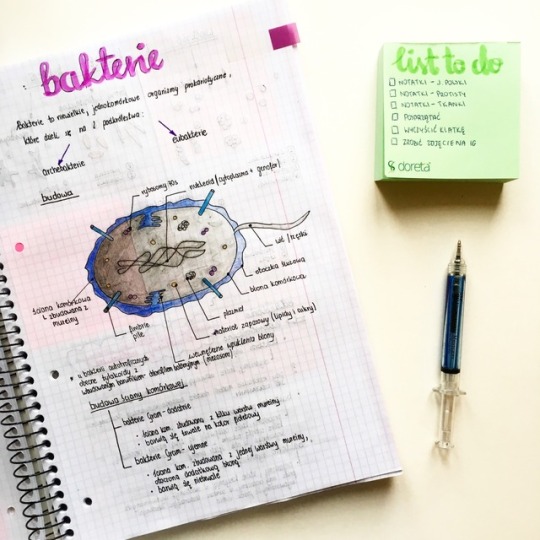 bakterie
Bakterie to niewielkie, jednokomórkowe organizmy prokariotyczne,
które dzieli się na 2 podkrólestwa:
archebakterie
eubakterie
budowa
rybosomy 70s
nukleoid (cytoplazma + genofor)
wić / rzęski
otoczka śluzowa
błona komórkowa
plazmid
materiał zapasowy (lipidy i cukry)
wewnętrzne wpuklenia błony
(mezosom)
fimbrie
pile
ściana komórkowa
zbudowana z
mureiny
u bakterii autotroficznych
obecne tylakoidy z
wbudowanym barwnikiem - chlorofilem bakteryjnym
budowa ściany komórkowej
bakterie Gram-dodatnie
ściana kom. zbudowana z kilku warstw mureiny
barwią się trwale na kolor
bakterie Gram-ujemne
ściana kom. zbudowana z jednej warstwy mureiny,
otoczona dodatkową błoną
barwią się nietrwale
list to do
NOTATKI - J. POLSKI
NOTATKI - PROTISTY
NOTATKI - TKANKI
POSPRZĄTAĆ
WYCZYŚCIĆ KLATKĘ
ZROBIĆ ZDJĘCIE NA IG
doreta